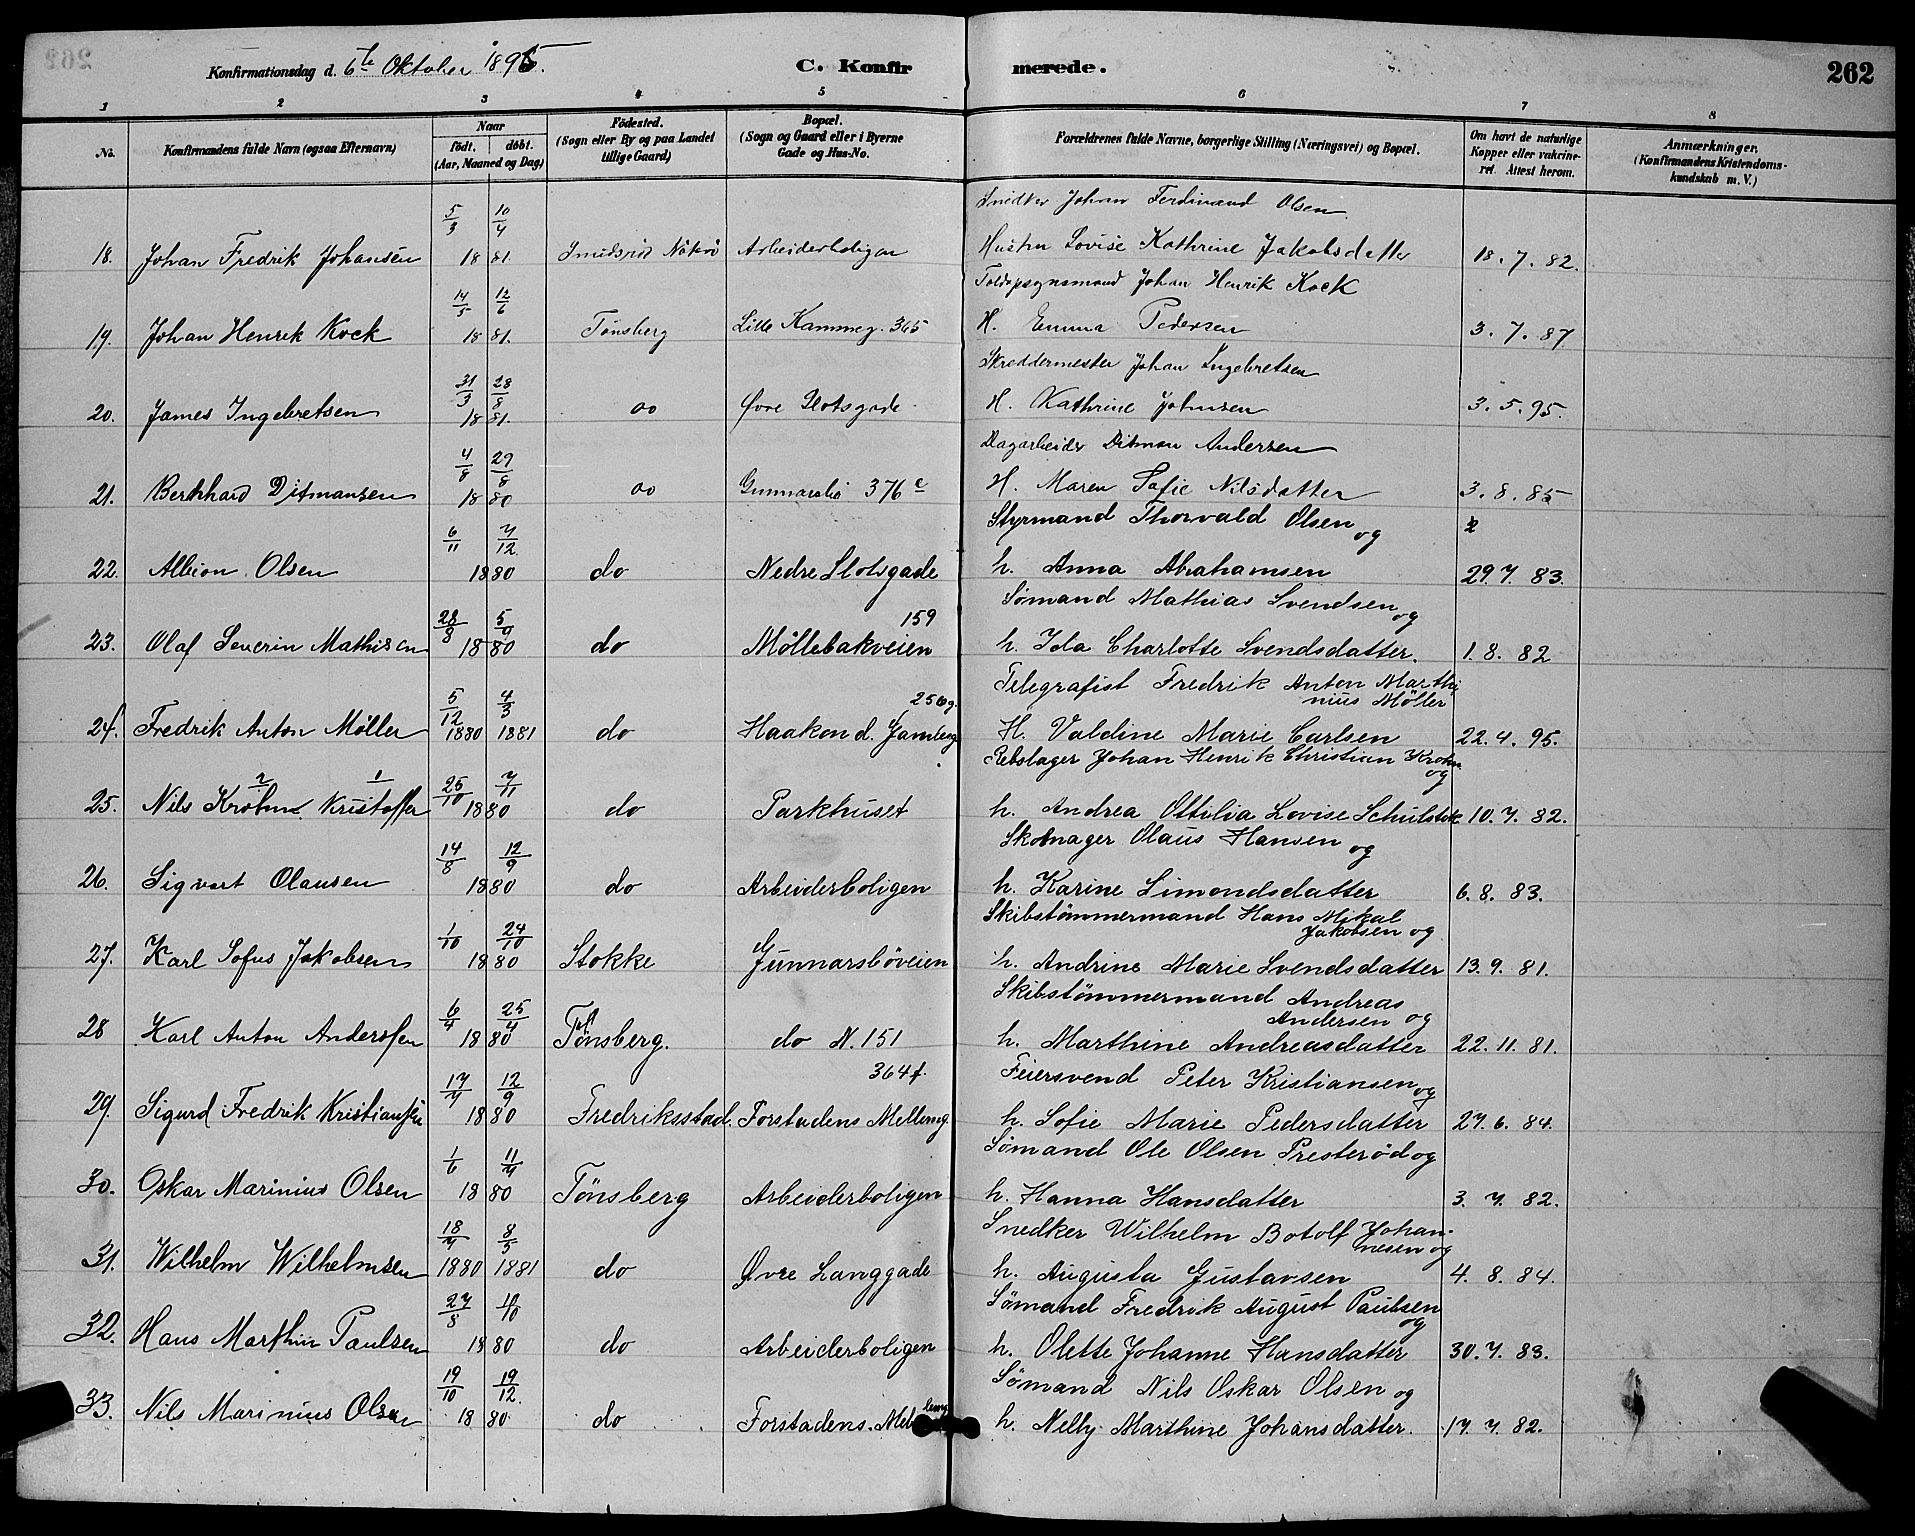 Konfirmationsdag d. 6te Oktober 1895. C. Konfirmerede. 262
1 2 3 4 5 6 7 8
No. Konfirmandens fulde Navn (ogsaa Efternavn) Naar født. døbt. (Aar, Maaned og Dag) Fødested. (Sogn eller By og paa Landet tillige Gaard) Bopæl. (Sogn og Gaard eller i Byerne Gade og Hus-No. Forældrenes fulde Navne, borgerlige Stilling (Næringsvei) og Bopæl. Om havt de naturlige Kopper eller vakcineret. Attest herom. Anmærkninger. (Konfirmandens Kristendomskundskab m. V.)
5/3 10/4 Snedker Johan Ferdinand Olsen
18. Johan Fredrik Johansen 1881. Arbeiderboligen Hustru Lovise Kathrine Jakobsdatter 18.7.82.
14/5 12/6 Toldopsynsmand Johan Henrik Kock
19. Johan Henrik Kock 1881. Tønsberg Lille Kammeg. 365 H. Emma Pedersen 3.7.87
31/3 28/8 Skreddermester Johan Ingebretsen
20. James Ingebretsen 1881. do Øvre Slotsgade H. Kathrine Johnsen 3.5.95.
4/8 29/8 Dagarbeider Ditman Andersen
21. Bernhard Ditmansen 1880 do Gunnarsbø 376 c H. Maren Sofie Nilsdatter 3.8.85
6/11 7/12. Styrmand Thorvald Olsen og
22. Albion Olsen 1880 do Nedre Slotsgade h. Anna Abrahamsen 29.7.83.
28/8 5/9 159 Sømand Mathias Svendsen og
23. Olaf Severin Mathisen 1880 do Møllebakveien h. Ida Charlotte Svendsdatter. 1.8.82
5/12 4/3 Telegrafist Fredrik Anton Marthinius Møller
24. Fredrik Anton Møller 1880 1881 do Haakon d. Gamles g. H. Valdine Marie Carlsen 22.4.95.
25/10 7/11 Rebslager Johan Henrik Christian Krohn og
25. Nils Krohn Kristoffer 1880 do Parkhuset h. Andrea Ottilia Lovise Schulstok 10.7.82.
14/8 12/9 Skomager Olaus Hansen og
26. Sigvart Olausen 1880 do Arbeiderboligen h. Karine Simondsdatter 6.8.83.
1/10 24/10 Skibstømmermand Hans Mikal Jakobsen og
27. Karl Sofus Jakobsen 1880 Stokke Gunnarsbøveien h. Andrine Marie Svendsdatter 13.9.81.
6/4 25/4 Skibstømmermand Andreas Andersen og
28 Karl Anton Anderssen 1880 Tønsberg. do N. 151 h. Marthine Andreasdatter 22.11.81.
17/7 12/9 364 f. Feiersvend Peter Kristiansen og
29. Sigurd Fredrik Kristiansen 1880 Fredriksstad. Forstadens Mellemg. h. Sofie Marie Pedersdatter 27.6.84.
1/6 11/7 Sømand Ole Olsen Presterød og
30. Oskar Marinius Olsen 1880 Tønsberg Arbeiderboligen h. Hanna Hansdatter 3.7.82.
18/7 8/5 Snedker Wilhelm Botolf Johannesen og
31. Wilhelm Wilhelmsen 1880 1881 do Øvre Langgade h. Augusta Gustavsen 4.8.84.
27/8 10/10 Sømand Fredrik August Paulsen og
32. Hans Marthin Paulsen 1880 do Arbeiderboligen h. Olette Johanne Hansdatter 30.7.83.
19/10 19/12. Sømand Nils Oskar Olsen og
33. Nils Marinius Olsen 1880 do Forstadens Mellemg h. Nelly Marthine Johansdatter. 17.7.82.